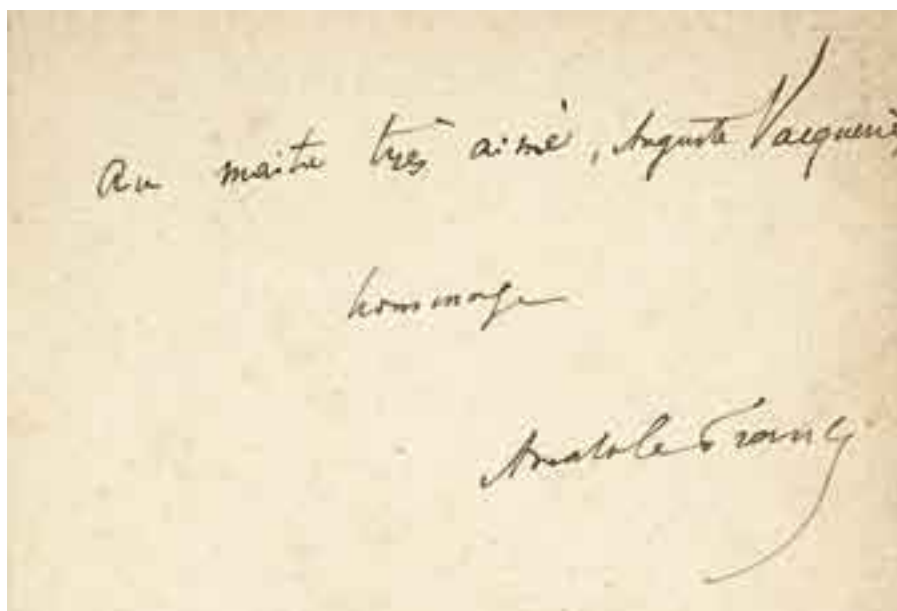 Au maitre très aimé, Auguste Vacquerie,
hommage
Anatole France